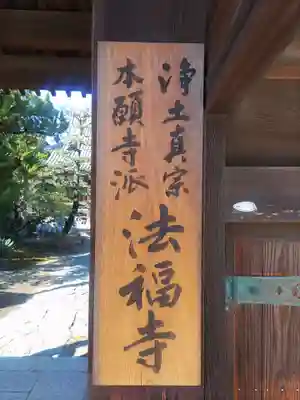 浄土真宗
本願寺派
法福寺